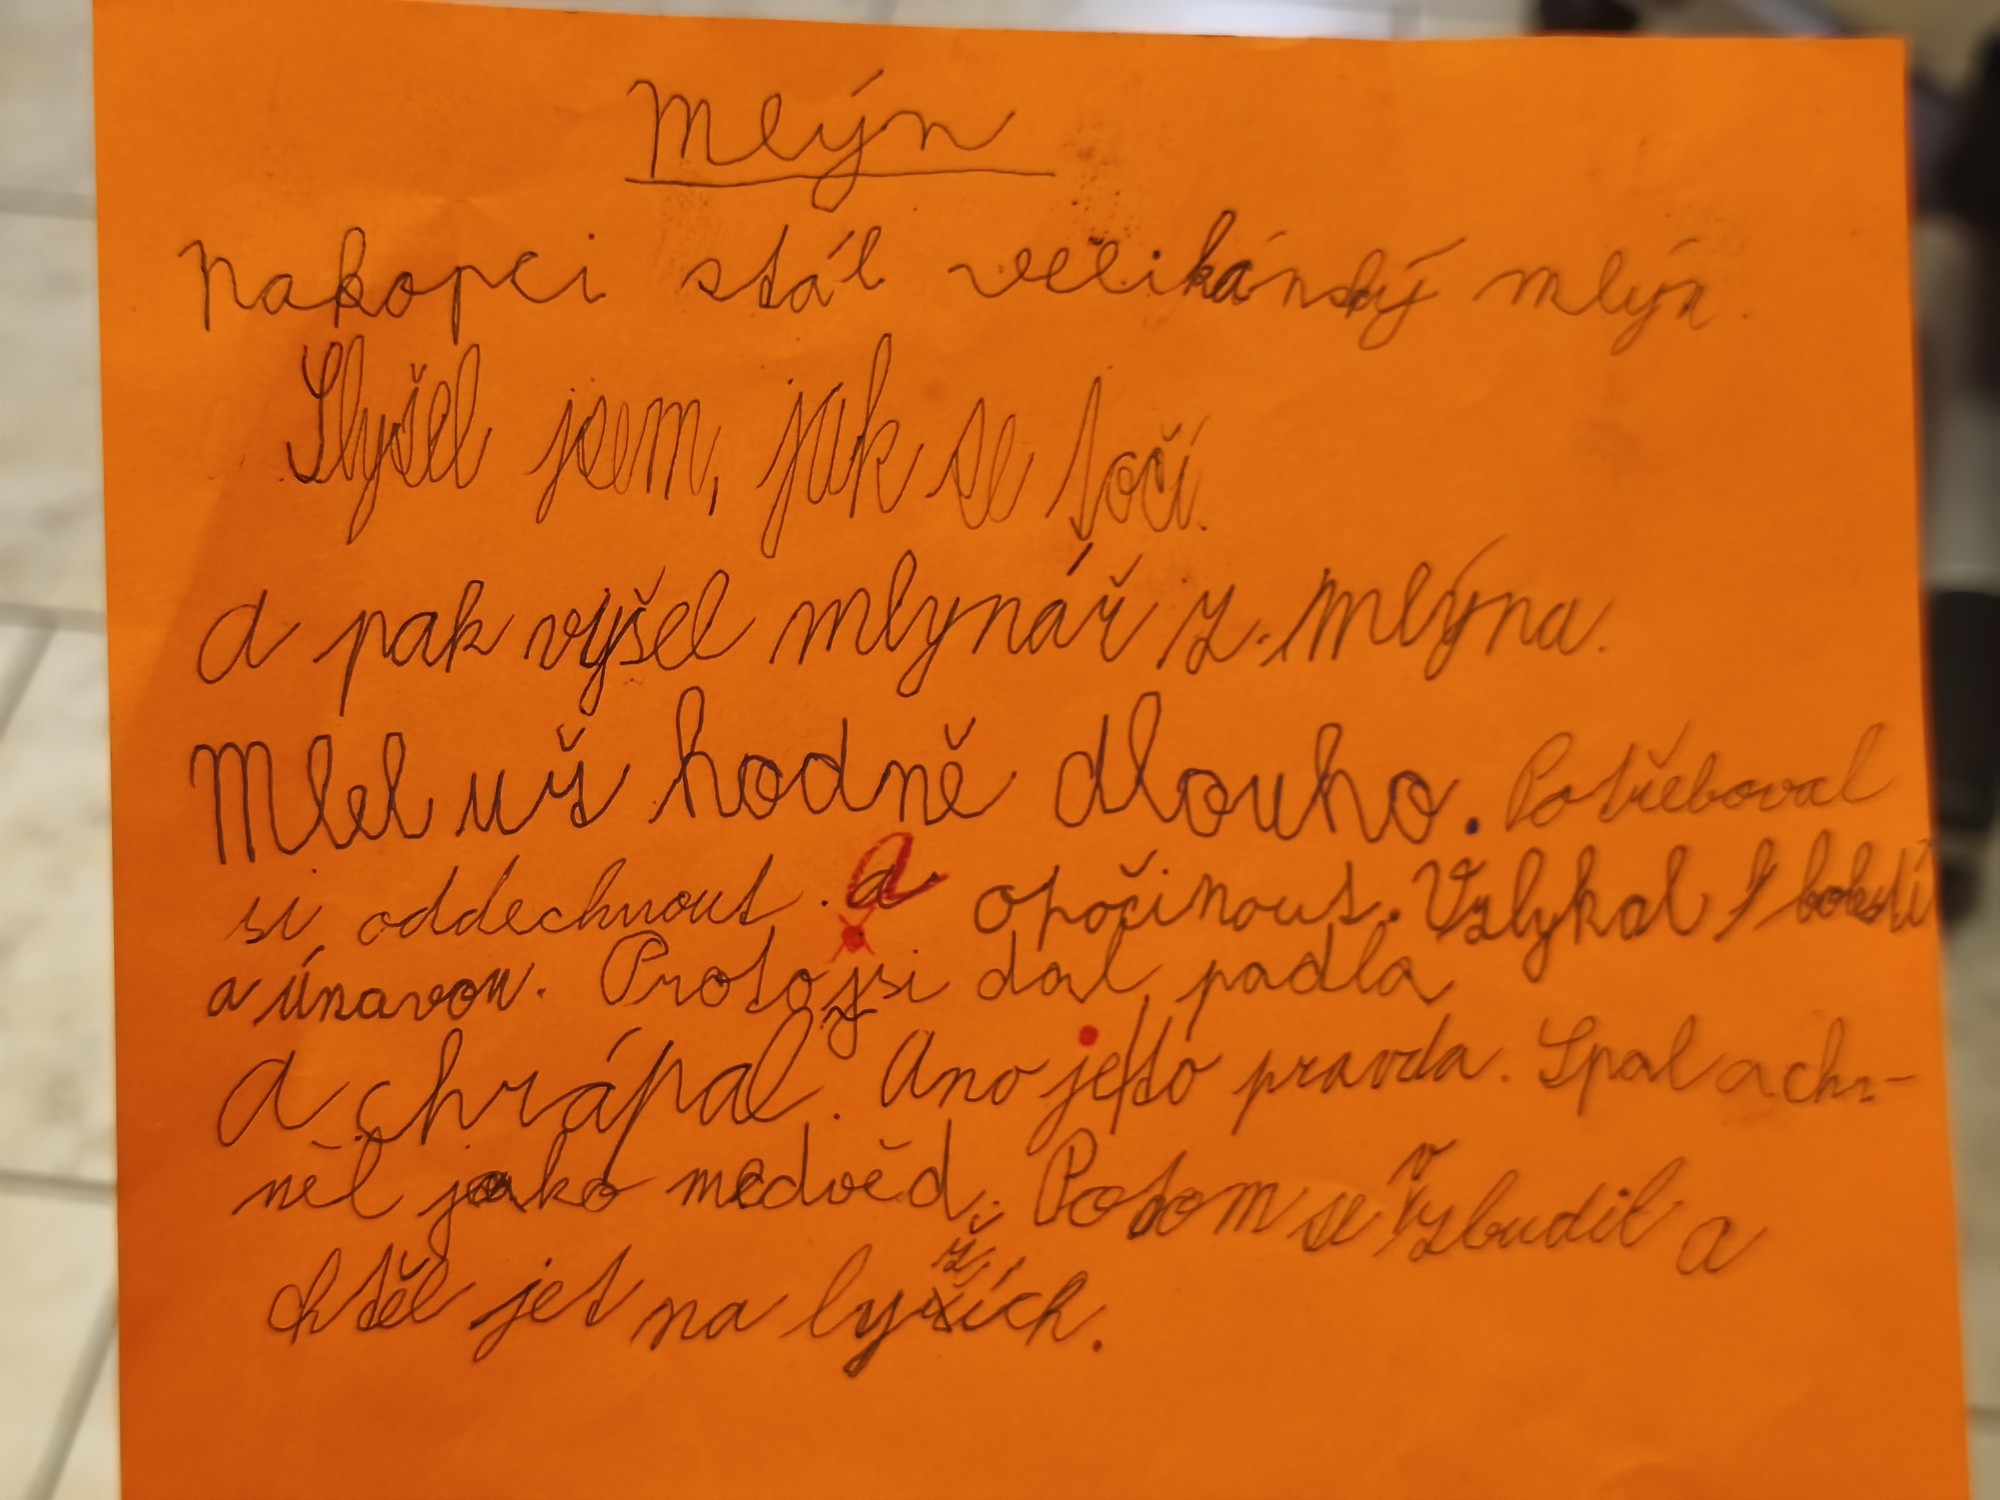 Mlýn
Nakopci stál velikánský mlýn.
Slyšel jsem, jak se točí.
a pak vyšel mlynář z. mlýna.
Mlel uš hodně dlouho. Potřeboval
si oddechnout. a opočinout. Vzlykal s bolestí
a únavou. Protojsi dal padla
a chrápal. Ano jeto pravda. Spal a chr-
něl jako medvěd. Potom se vzbudil a
chtěl jet na lyžích.